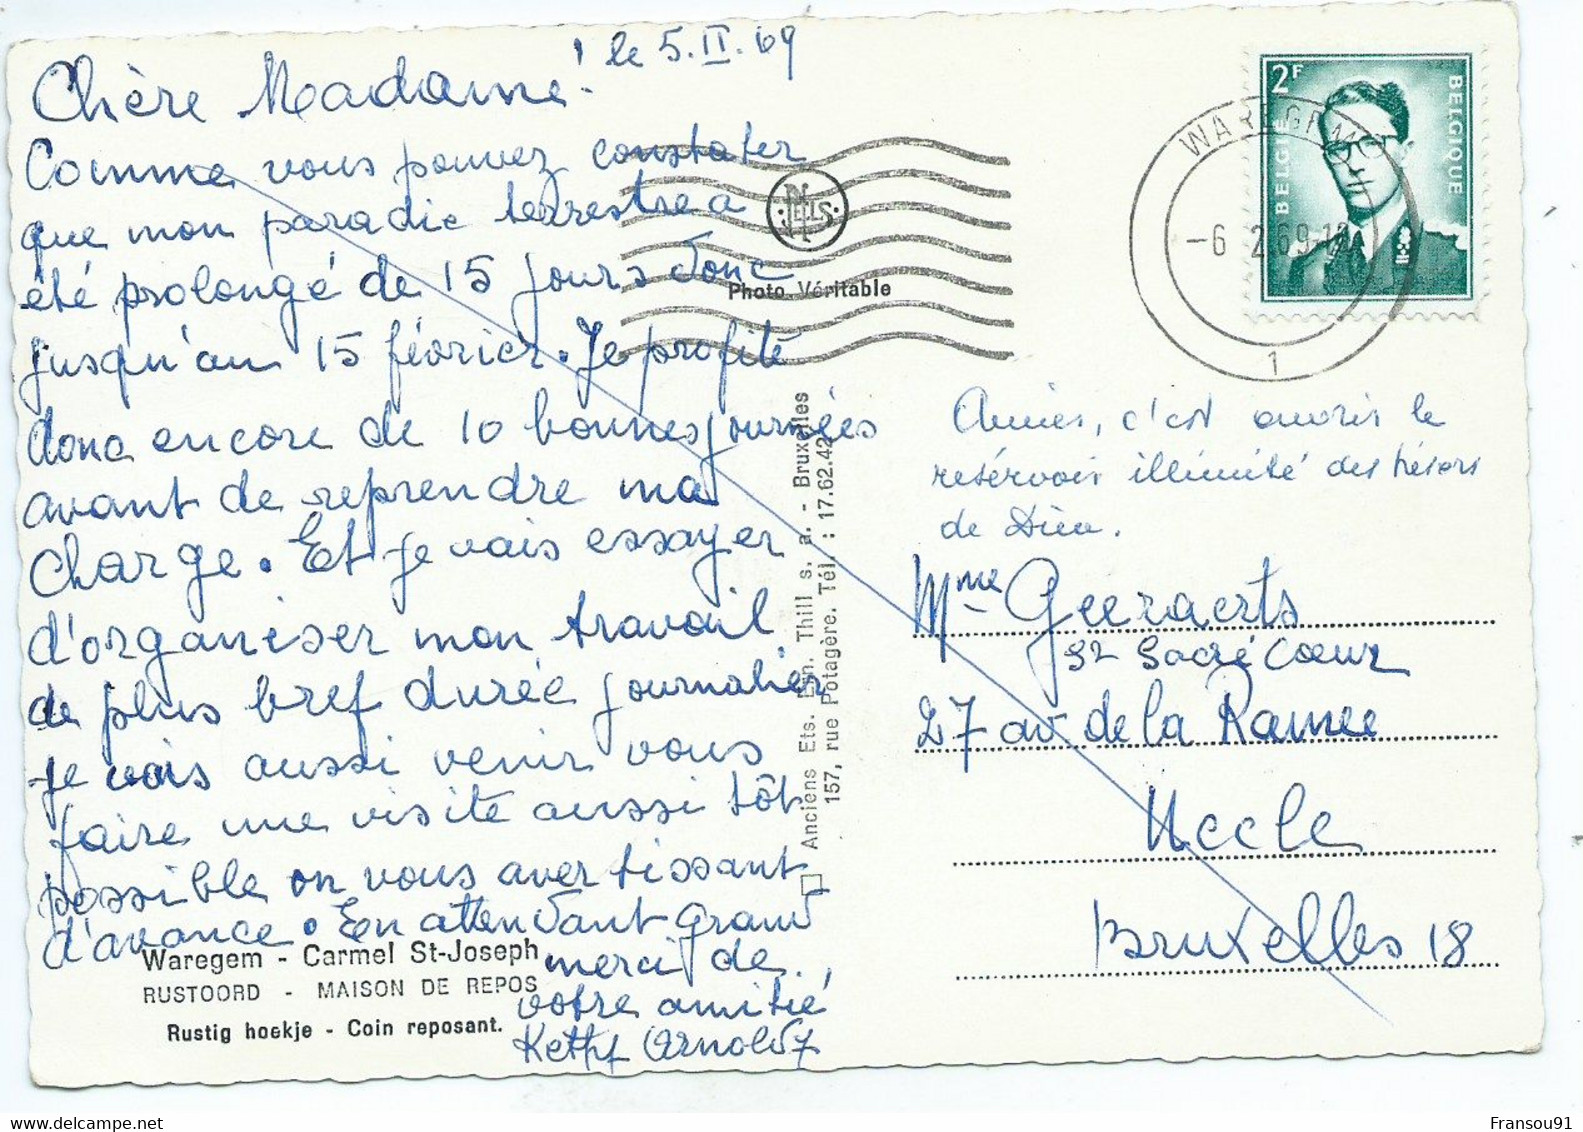 le 5.II.69
Chère Madame!
Comme vous pouvez constater
que mon paradie terrestre a
été prolongé de 15 jours donc
jusqu'au 15 février. Je profite
donc encore de 10 bonnes journées
avant de reprendre ma
charge. Et je vais essayer
d'organiser mon travail
de plus bref durée journalier
je vais aussi venir vous
faire une visite aussi tôt
possible on vous avertissant
d'avance. En attendant grand
merci de
votre amitié
Waregem - Carmel St-Joseph
RUSTOORD - MAISON DE REPOS
Rustig hoekje - Coin reposant.
NELS
Photo Véritable
Anciens Ets. Ern. Thill s. a. - Bruxelles
157, rue Potagère. Tél. : 17.62.42
2F
BELGIË
BELGIQUE
WAREGEM
-6 2 69-12
1
Aimer, c'est ouvrir le
resérvoir illimité des trésors
de Dieu.
Mme Geeraerts
Sacré Coeur
27 av de la Ramee
Uccle
Bruxelles 18
Fransou91